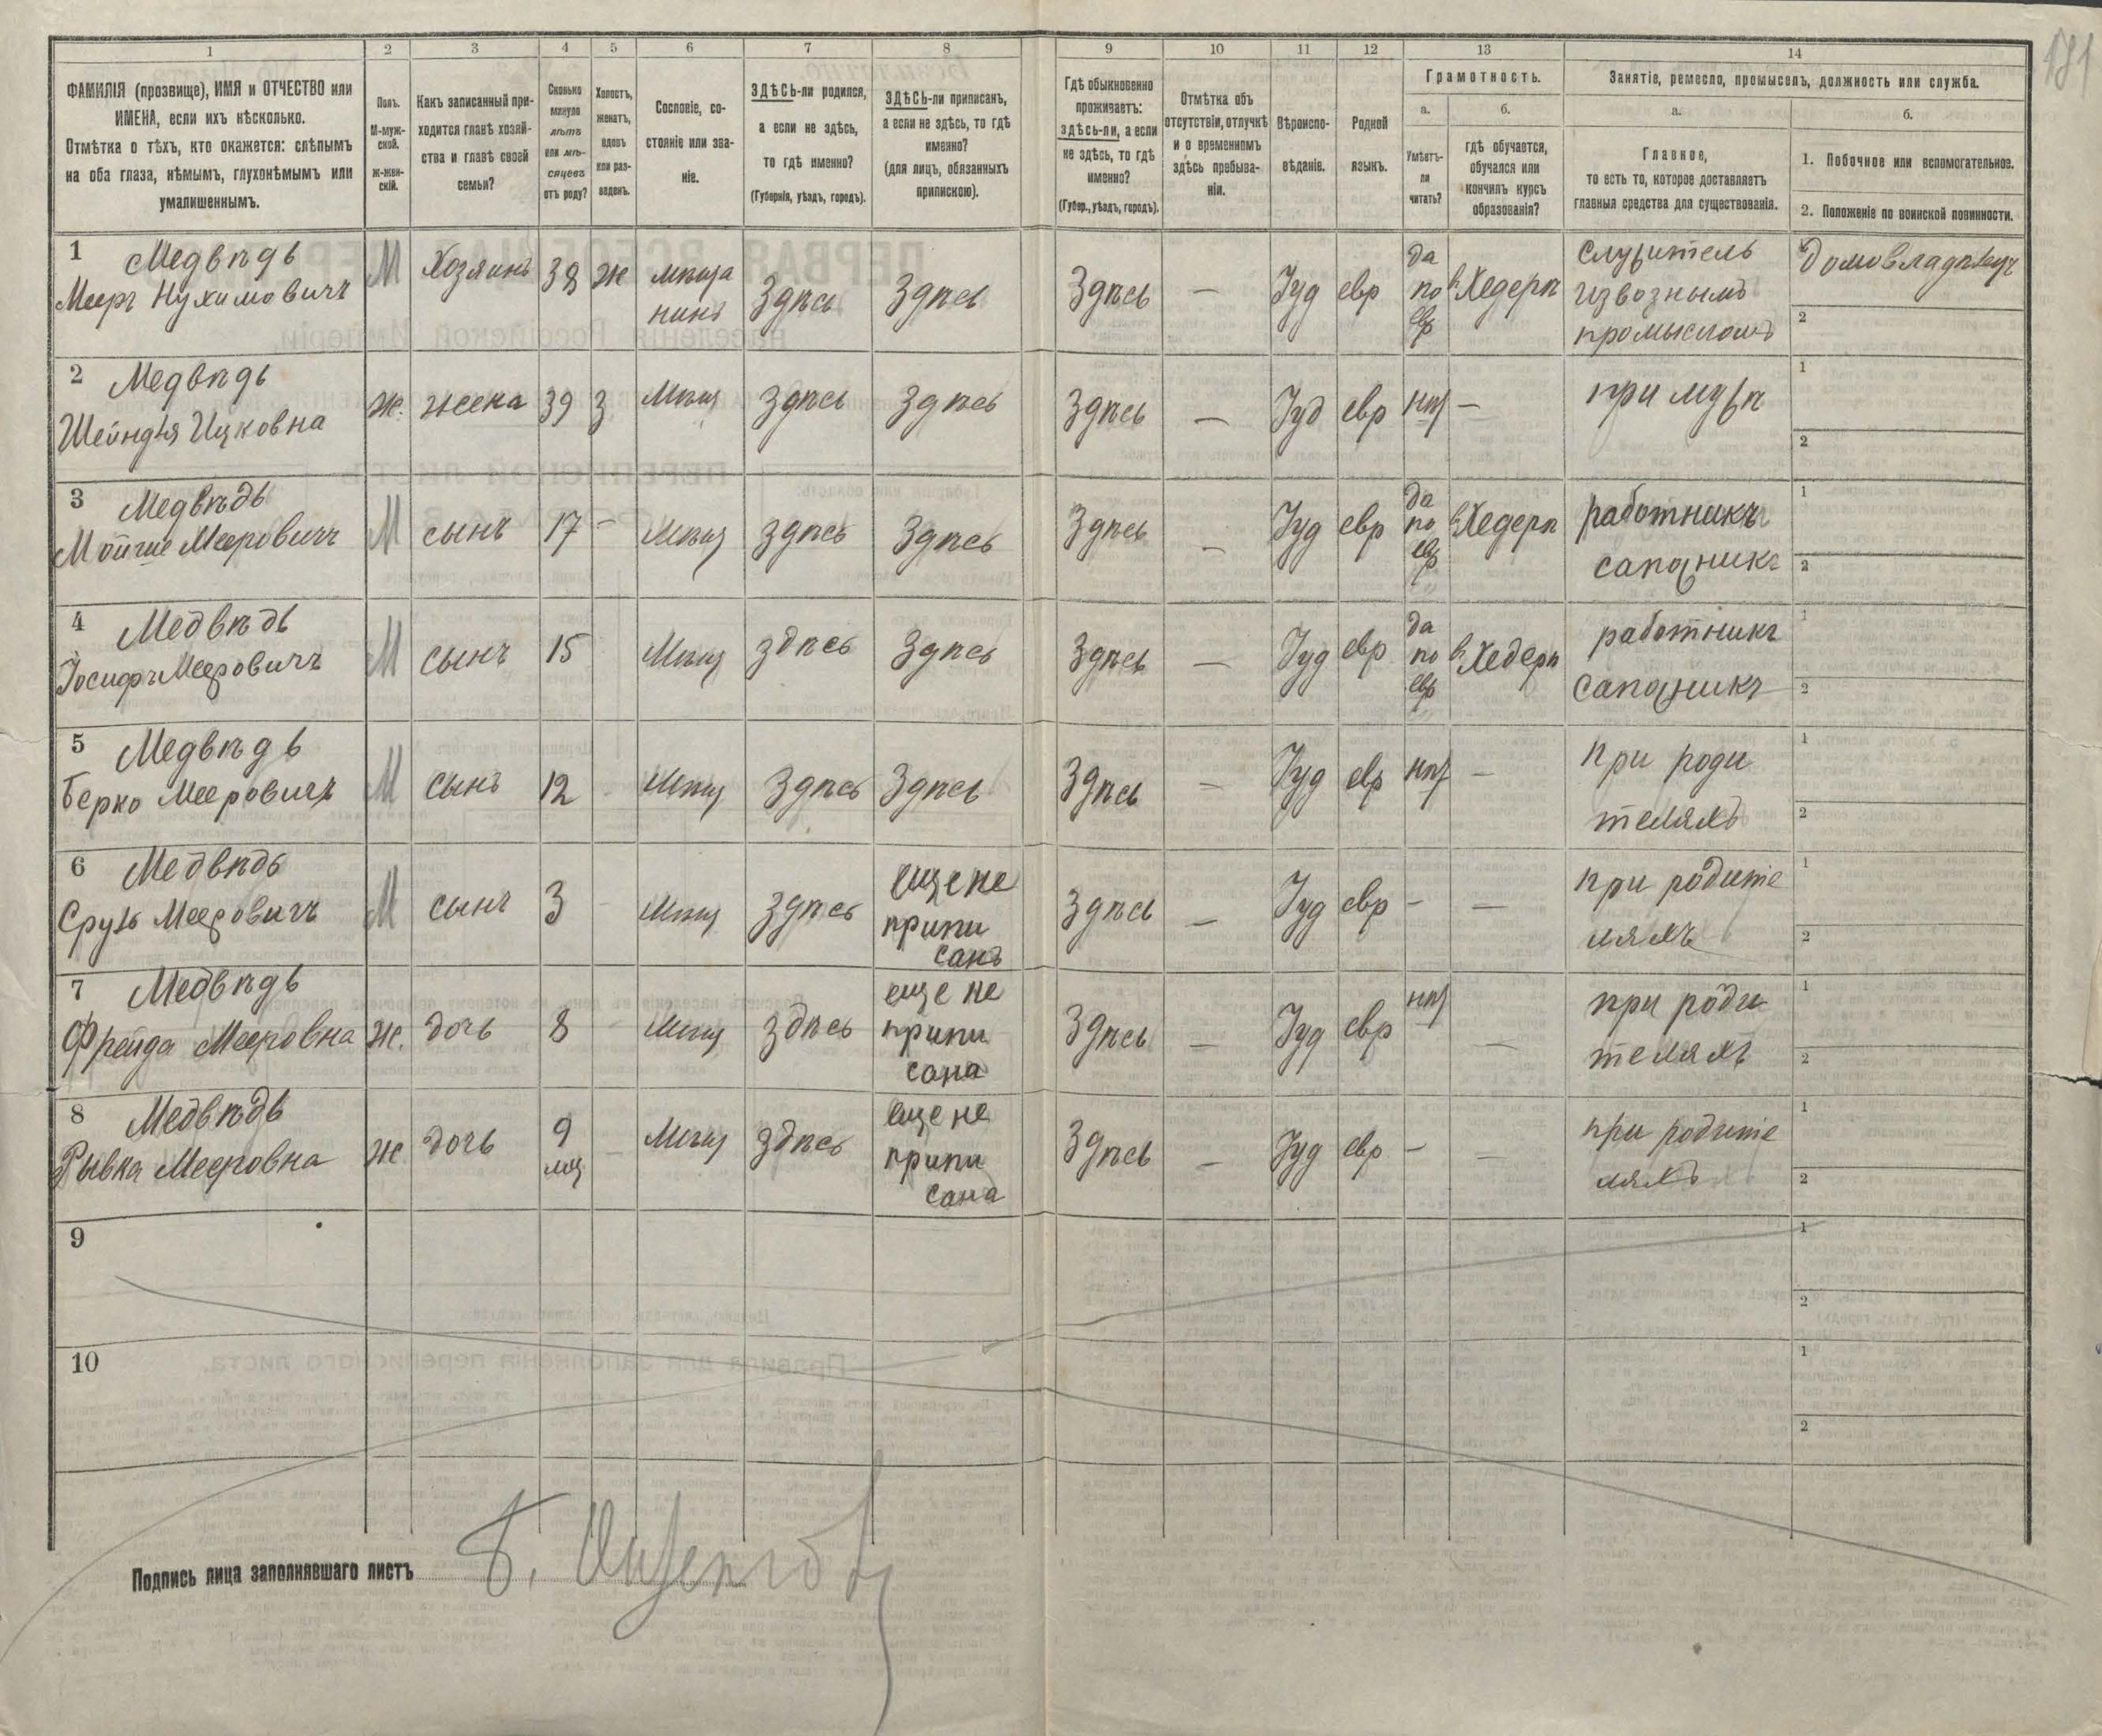 181
1 2 3 4 5 6 7 8 9 10 11 12 13 14
ФАМИЛІЯ (прозвище), ИМЯ и ОТЧЕСТВО или
ИМЕНА, если ихъ нѣсколько.
Отмѣтка о тѣхъ, кто окажется: слѣпымъ
на оба глаза, нѣмымъ, глухонѣмымъ или
умалишеннымъ.
Полъ.
М-муж-
ской.
Ж-жен-
скій.
Какъ записанный при-
ходится главѣ хозяй-
ства и главѣ своей
семьи?
Сколько
минуло
лѣтъ
или мѣ-
сяцевъ
отъ роду?
Холостъ,
женатъ,
вдовъ
или раз-
веденъ.
Сословіе, со-
стояніе или зва-
ніе.
ЗДѢСЬ-ли родился,
а если не здѣсь,
то гдѣ именно?
(Губернія, уѣздъ, городъ).
ЗДѢСЬ-ли приписанъ,
а если не здѣсь, то гдѣ
именно?
(для лицъ, обязанныхъ
припискою).
Гдѣ обыкновенно
проживаетъ:
здѣсь-ли, а если
не здѣсь, то гдѣ
именно?
(Губер., уѣздъ, городъ).
Отмѣтка объ
отсутствіи, отлучкѣ
и о временномъ
здѣсь пребыва-
ніи.
Вѣроиспо-
вѣданіе.
Родной
языкъ.
Грамотность.
а.
Умѣетъ-
ли
читать?
б.
гдѣ обучается,
обучался или
кончилъ курсъ
образованія?
Занятіе, ремесло, промыселъ, должность или служба.
а.
Главное,
то есть то, которое доставляетъ
главныя средства для существованія.
б.
1. Побочное или вспомогательное.
2. Положеніе по воинской повинности.
1 Медвѣдь
Мееръ Нухимовичъ
М
Хозяинъ
38
ж
мѣща
нинъ
Здѣсь
Здѣсь
Здѣсь
—
Іуд
евр
да
по
евр
в Хедерѣ
извознымъ
промысломъ
1
2
2 Медвѣдь
Шейндля Ицковна
ж.
жена
39
З
Мѣщ
Здѣсь
Здѣсь
Здѣсь
—
Іуд
евр
нѣт
—
при мужѣ
1
2
3 Медвѣдь
Мойше Мееровичъ
М
сынъ
17
-
Мѣщ
Здѣсь
Здѣсь
Здѣсь
—
Іуд
евр
да
по
евр
в Хедерѣ
работникъ
сапожникъ
1
2
4 Медвѣдь
Іосифъ Мееровичъ
М
сынъ
15
Мѣщ
здѣсь
Здѣсь
Здѣсь
—
Іуд
евр
да
по
евр
в Хедерѣ
работникъ
сапожникъ
1
2
5 Медвѣдь
Берко Мееровичъ
М
сынъ
12
-
Мѣщ
Здѣсь
Здѣсь
Здѣсь
—
Іуд
евр
нѣт
—
при роди
теляхъ
1
2
6 Медвѣдь
Сруль Мееровичъ
М
сынъ
3
-
Мѣщ
Здѣсь
еще не
припи
санъ
Здѣсь
—
Іуд
евр
-
—
при родите
ляхъ
1
2
7 Медвѣдь
Фрейда Мееровна
ж.
дочь
8
-
Мѣщ
Здѣсь
еще не
припи
сана
Здѣсь
—
Іуд
евр
нѣт
—
при роди
теляхъ
1
2
8 Медвѣдь
Рывка Мееровна
ж
дочь
9
мѣс
-
Мѣщ
Здѣсь
еще не
припи
сана
Здѣсь
—
Іуд
евр
-
—
при родите
ляхъ
1
2
9
1
2
10
1
2
Подпись лица заполнявшаго листъ